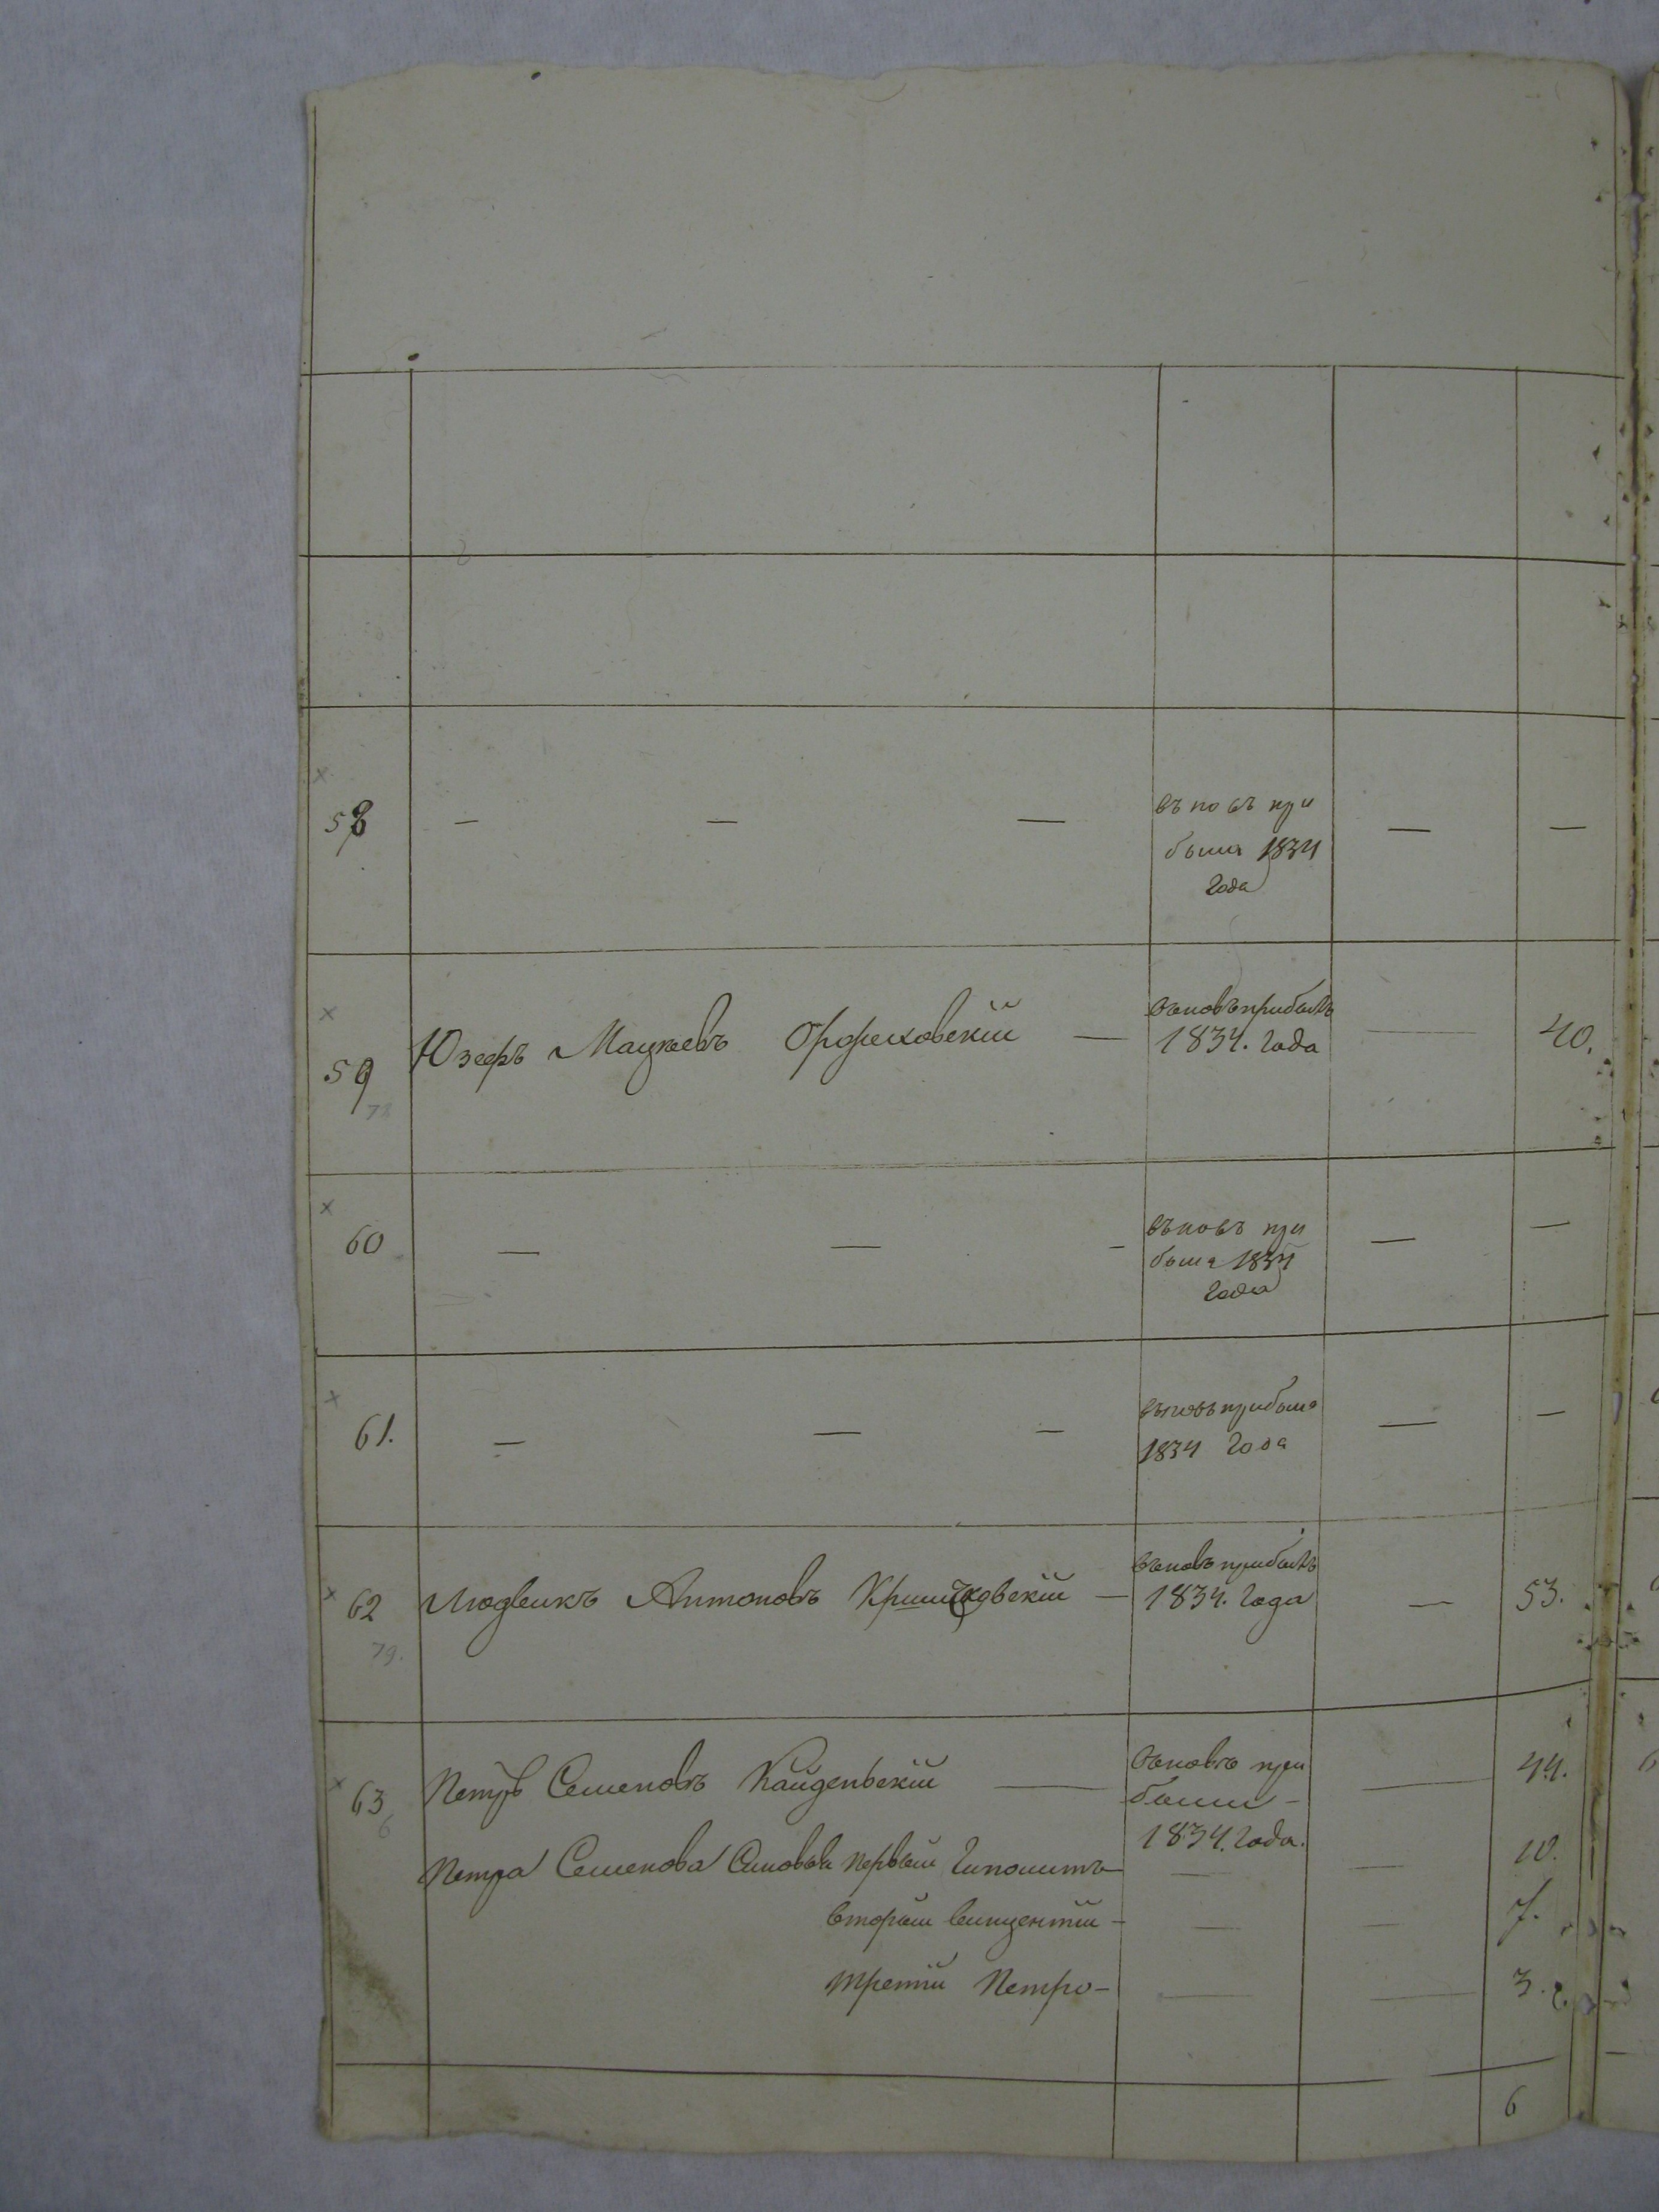 58 — — — въновь при — —
была 1834
года
Юзефъ Мацѣевъ Оржеховскій — вьновь прибылъ — 40.
59 1834. года
78
60 — — — въновь при — —
была 1834
года
61. — — — въновь прибыла — —
1834 года
62 Людвикъ Антоновъ — вьновь прибылъ — 53.
1834. года
79.
63 Петръ Семеновъ Кайденьскій — вьновь при — 44.
были –
6 1834. года.
Петра Семенова Сыновья первый Гиполитъ — — — 10.
вторый Винцентій — — — 7.
третій Петро — — — 3.
6